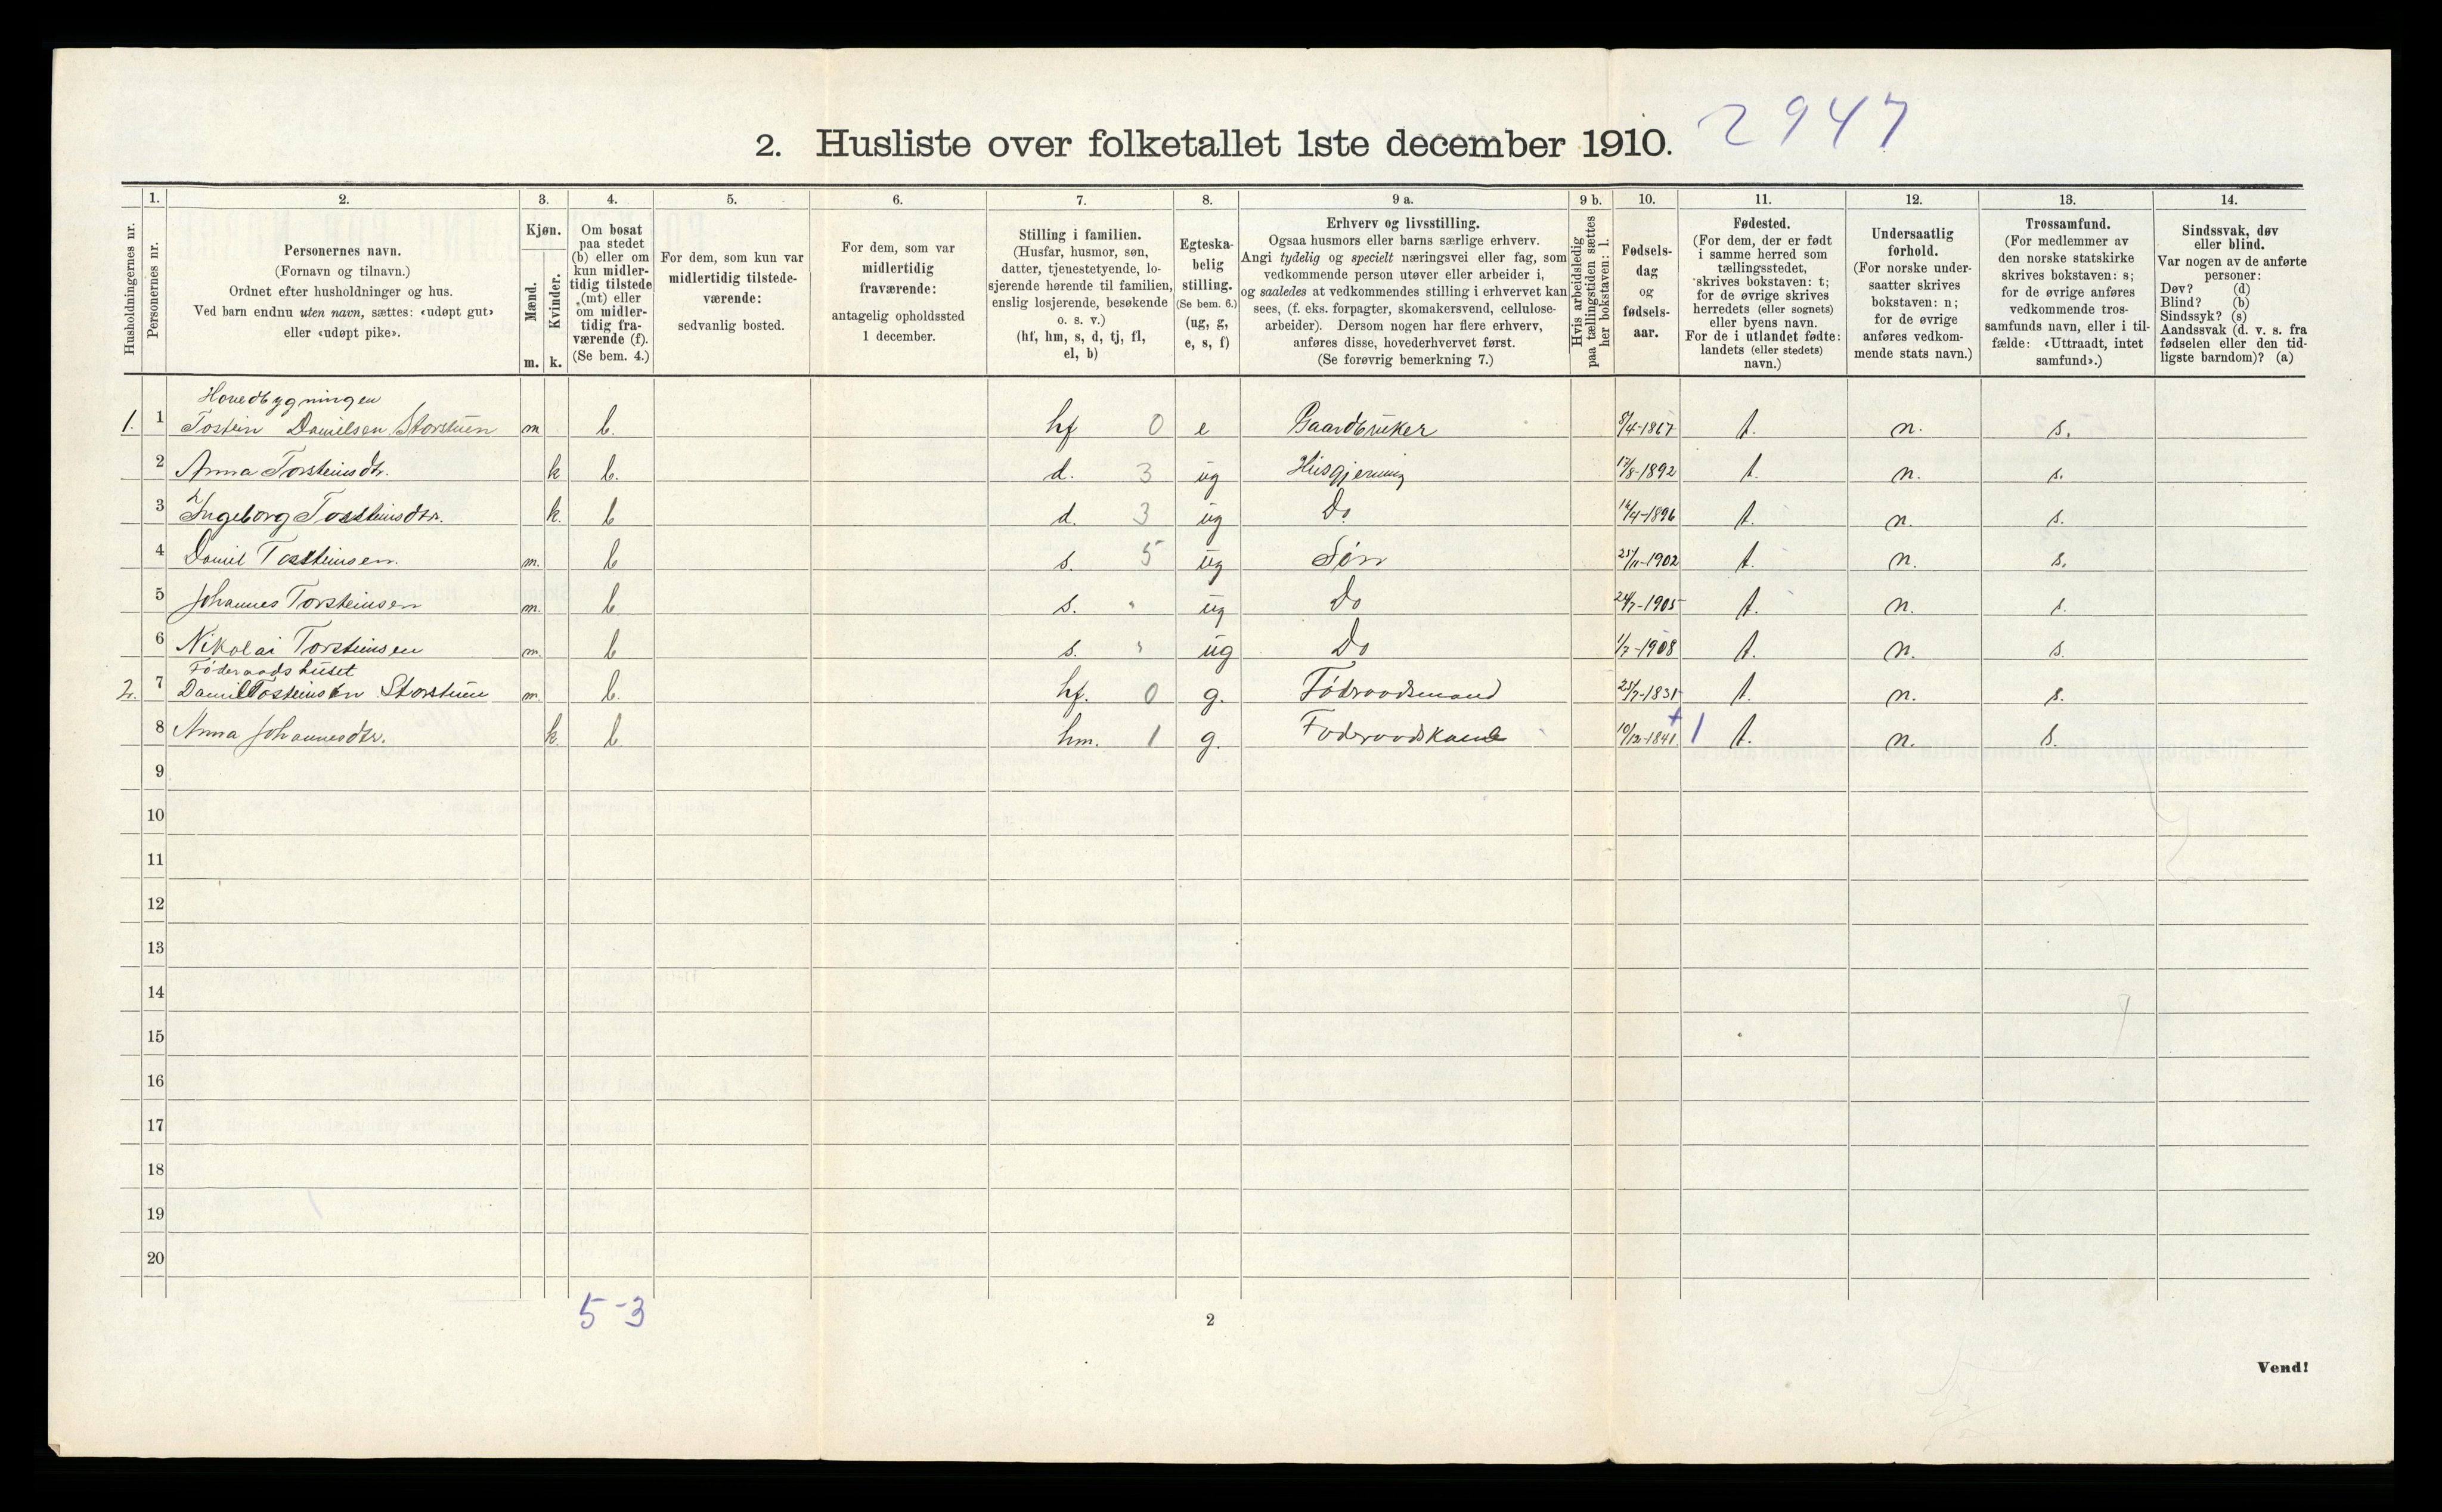 2. Husliste over folketallet 1ste december 1910. 2947
Husholdningernes nr.
1.
Personernes nr.
2.
Personernes navn.
(Fornavn og tilnavn.)
Ordnet efter husholdninger og hus.
Ved barn endnu uten navn, sættes: «udøpt gut»
eller «udøpt pike».
3.
Kjøn.
Mænd.
Kvinder.
m. k.
4.
Om bosat
paa stedet
(b) eller om
kun midler-
tidig tilstede
(mt) eller
om midler-
tidig fra-
værende (f).
(Se bem. 4.)
5.
For dem, som kun var
midlertidig tilstede-
værende:
sedvanlig bosted.
6.
For dem, som var
midlertidig
fraværende:
antagelig opholdssted
1 december.
7.
Stilling i familien.
(Husfar, husmor, søn,
datter, tjenestetyende, lo-
sjerende hørende til familien,
enslig losjerende, besøkende
o. s. v.)
(hf, hm, s, d, tj, fl,
el, b)
8.
Egteska-
belig
stilling.
(Se bem. 6.)
(ug, g,
e, s, f)
9 a.
Erhverv og livsstilling.
Ogsaa husmors eller barns særlige erhverv.
Angi tydelig og specielt næringsvei eller fag, som
vedkommende person utøver eller arbeider i,
og saaledes at vedkommendes stilling i erhvervet kan
sees, (f. eks. forpagter, skomakersvend, cellulose-
arbeider). Dersom nogen har flere erhverv,
anføres disse, hovederhvervet først.
(Se forøvrig bemerkning 7.)
9 b.
Hvis arbeidsledig
paa tællingstiden sættes
her bokstaven: l.
10.
Fødsels-
dag
og
fødsels-
aar.
11.
Fødested.
(For dem, der er født
i samme herred som
tællingsstedet,
skrives bokstaven: t;
for de øvrige skrives
herredets (eller sognets)
eller byens navn.
For de i utlandet fødte:
landets (eller stedets)
navn.)
12.
Undersaatlig
forhold.
(For norske under-
saatter skrives
bokstaven: n;
for de øvrige
anføres vedkom-
mende stats navn.)
13.
Trossamfund.
(For medlemmer av
den norske statskirke
skrives bokstaven: s;
for de øvrige anføres
vedkommende tros-
samfunds navn, eller i til-
fælde: «Uttraadt, intet
samfund».)
14.
Sindssvak, døv
eller blind.
Var nogen av de anførte
personer:
Døv? (d)
Blind? (b)
Sindssyk? (s)
Aandssvak (d. v. s. fra
fødselen eller den tid-
ligste barndom)? (a)
Hovedbygningen
1. 1 Tostein Danielsen Storstuen m b. hf 0 e Gaardbruker 8/4-1867 t. n. s.
2 Anna Torsteinsdtr. k b. d. 3 ug Husgjerning 17/8-1892 t. n. s.
3 Ingeborg Torsteinsdtr. k. b d. 3 ug Do 14/4-1896 t. n. s.
4 Daniel Torsteinsen. m. b s. 5 ug Søn 25/11-1902 t. n. s.
5 Johannes Torsteinsen m. b s. " ug Do 24/7-1905 t. n. s.
6 Nikolai Torsteinsen m. b s. " ug Do 1/7-1908 t. n. s.
Føderaadshuset
2. 7 Daniel Tosteinsen Storstuen m b. hf. 0 g. Födraadsmand 25/7-1831 t. n. s.
8 Anna Johannesdtr. k. b hm. 1 g. Foderaadskone 10/12-1841. + 1 t. n. s.
9
10
11
12
13
14
15
16
17
18
19
20
5-3
2
Vend!